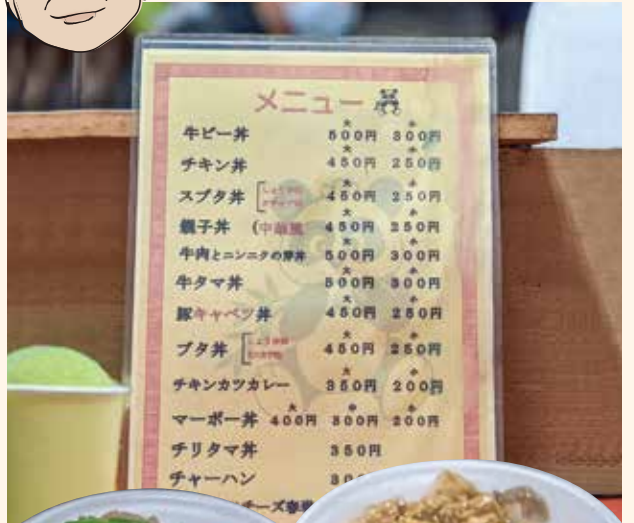 メニュー
牛ピー丼 大500円 小300円
チキン丼 大450円 小250円
スブタ丼 大450円 小250円
親子丼 (中華風 大450円 小250円
牛肉とニンニクの芽丼 大500円 小300円
牛タマ丼 大500円 小300円
豚キャベツ丼 大450円 小250円
ブタ丼 大450円 小250円
チキンカツカレー 大350円 小200円
マーボー丼 大400円 中300円 小200円
チリタマ丼 350円
チャーハン
チーズ春